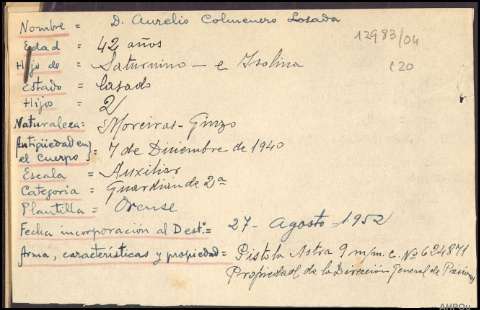 Nombre = D. Aurelio Colmenero Losada
12983/04
Edad = 42 años
C20
Hijo de = Saturnino - e Isolina
Estado = Casado
Hijos = 2/
Naturaleza = Moreiras - Ginzo
Antigüedad en el Cuerpo } = 7 de Diciembre de 1940
Escala = Auxiliar
Categoria = Guardian de 2ª
Plantilla = Orense
Fecha incorporación al Destº = 27 - Agosto 1952
Arma, caracteristicas y propiedad = Pistola Astra 9 m/m. C. Nº 624871
Propiedad de la Dirección General de Prisiones